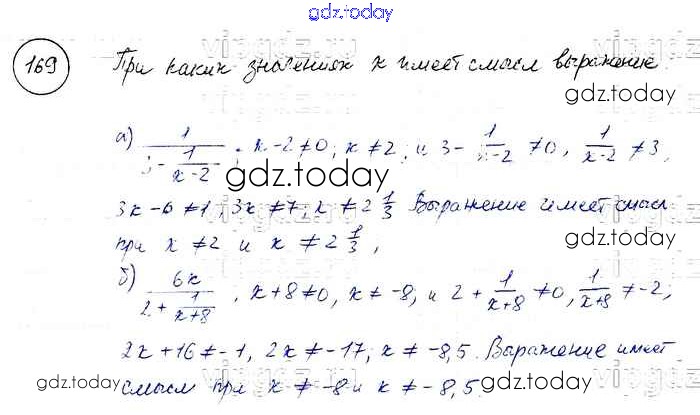 gdz.today
169 При каких значениях x имеет смысл выражение
gdz.today
а) 1/(3 - 1/(x-2)); x-2≠0; x≠2; и 3 - 1/(x-2) ≠0, 1/(x-2) ≠3,
gdz.today
3x-6≠1; 3x≠7; x≠2 1/3 Выражение имеет смысл
при x≠2 и x≠2 1/3,
gdz.today
б) 6x/(2 + 1/(x+8)), x+8≠0, x≠-8; и 2 + 1/(x+8) ≠0, 1/(x+8) ≠-2;
2x+16≠-1, 2x≠-17; x≠-8,5. Выражение имеет
смысл при x≠-8 и x≠-8,5.
gdz.today
gdz.today